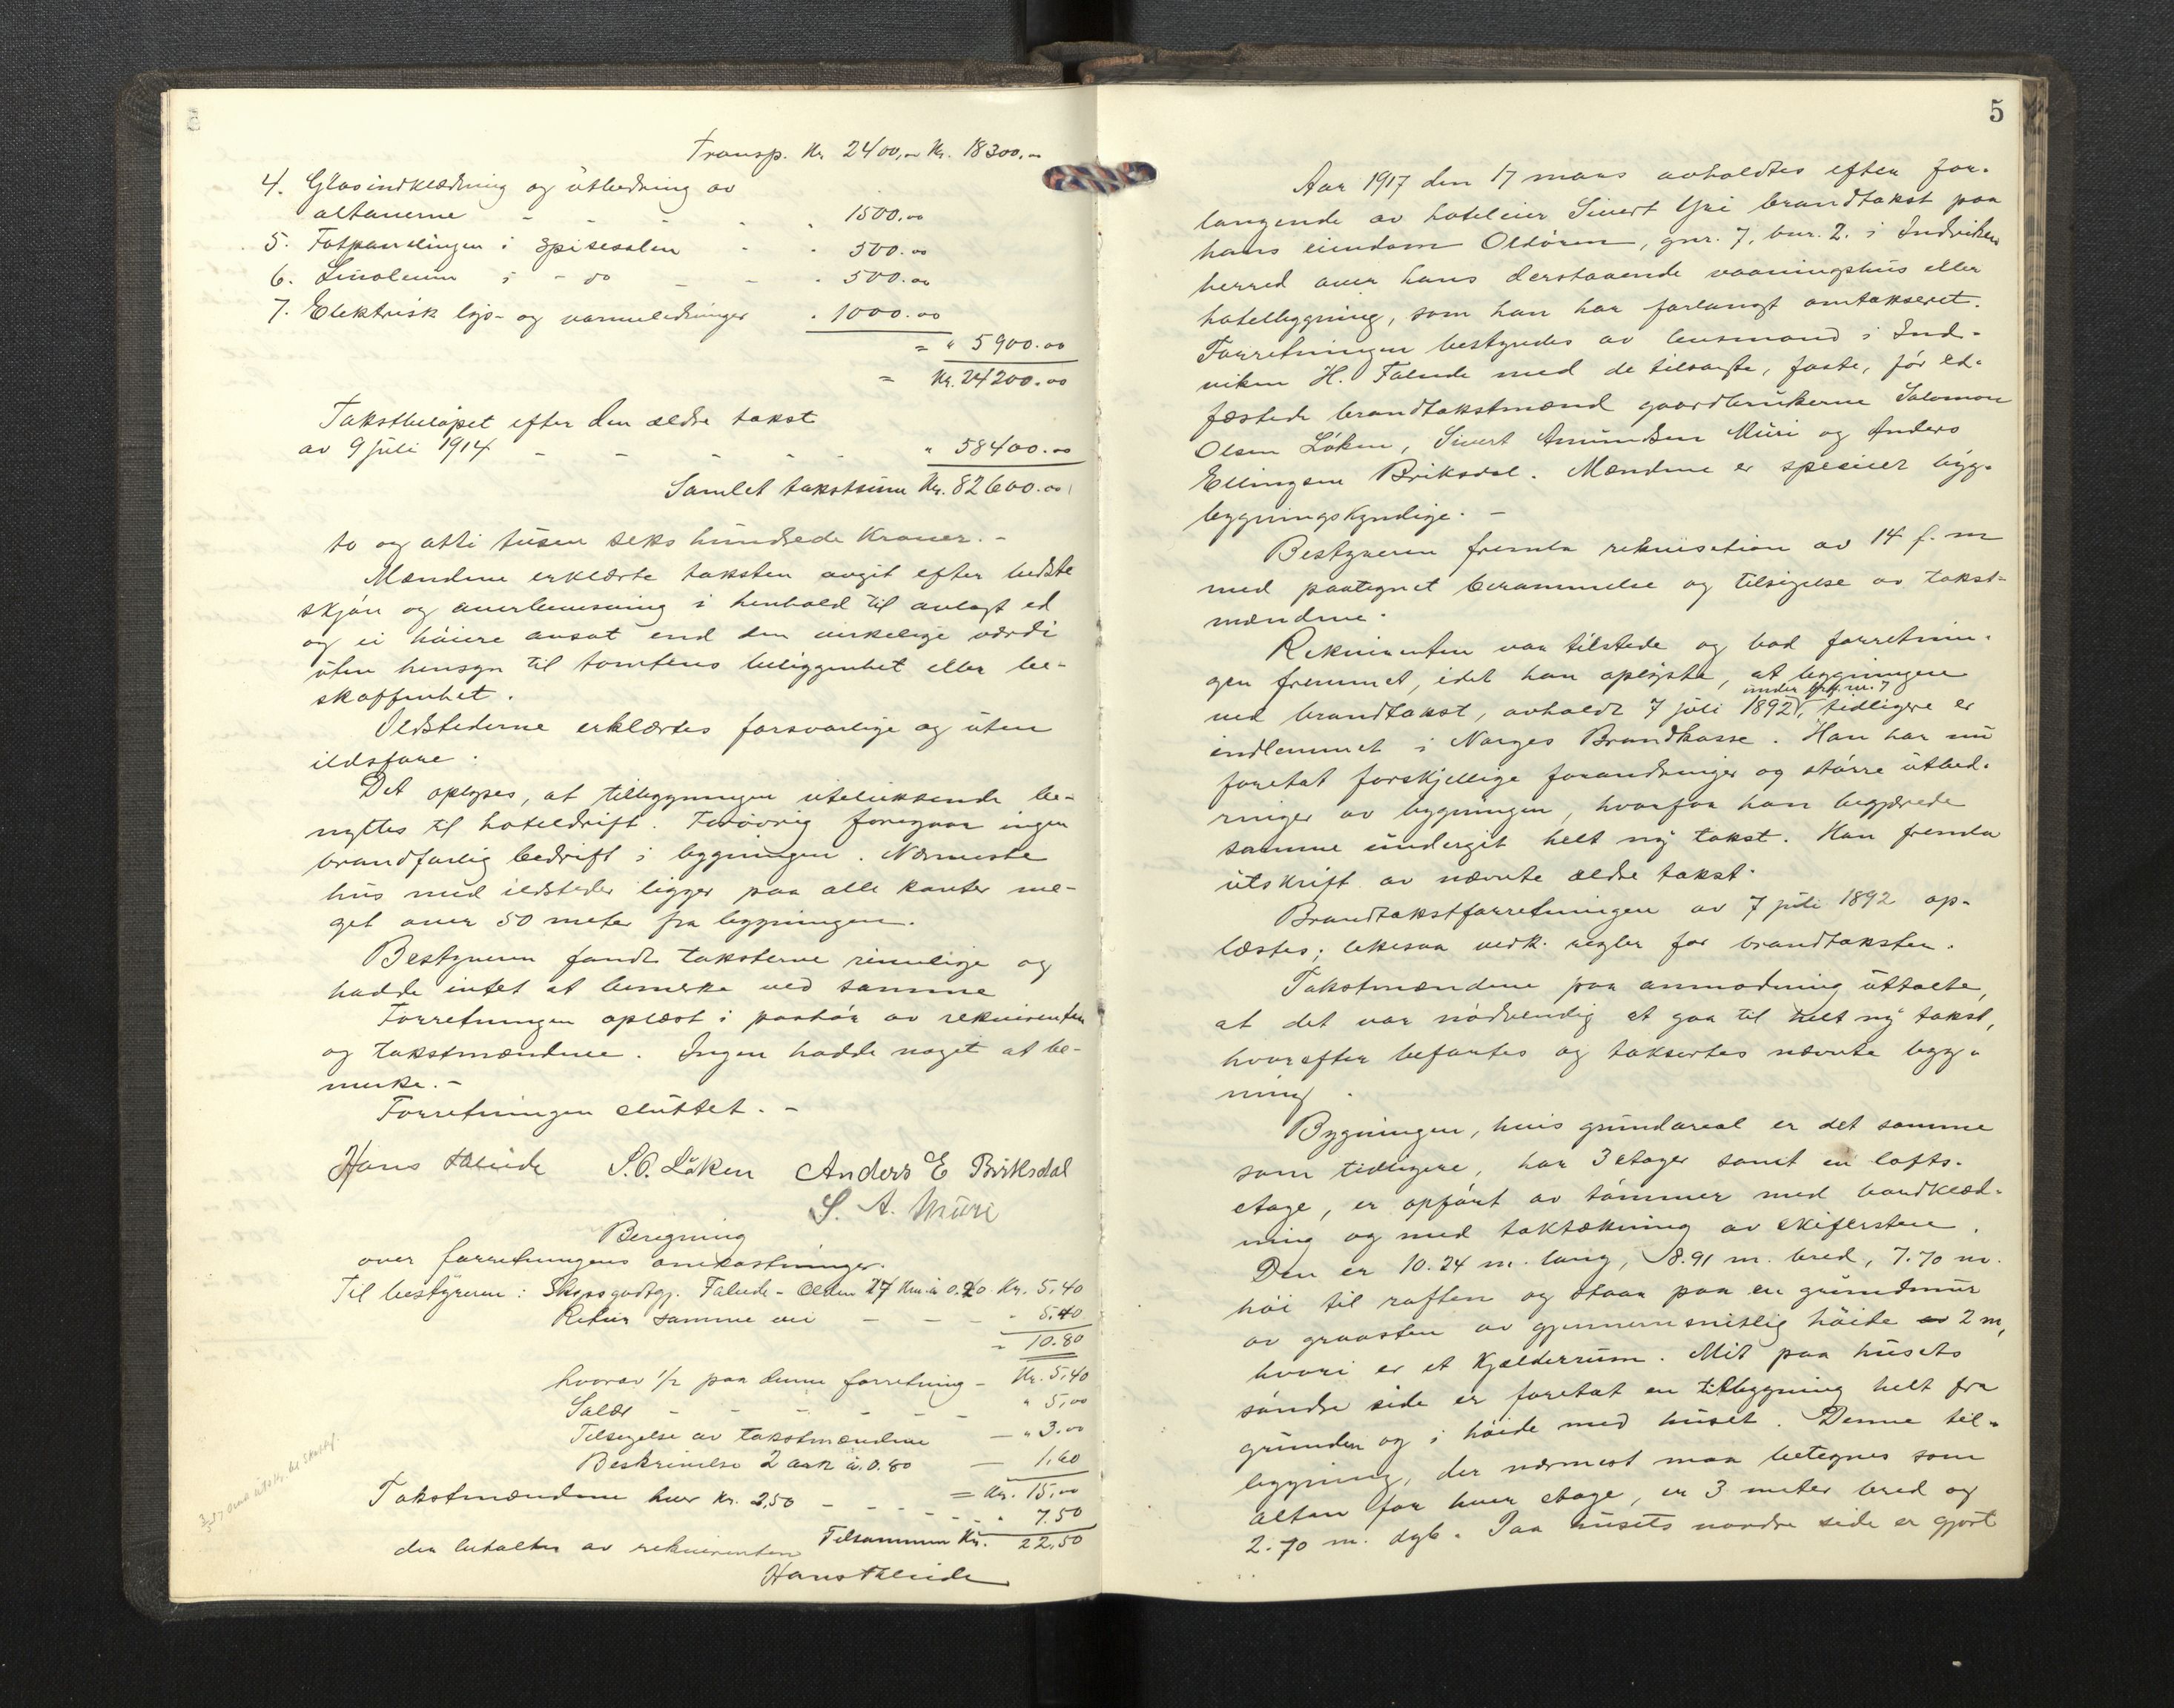 Transp. Kr. 2400,00 Kr. 18300,00
4. Glasindklædning og utbedring av
altanerne - - - - " 1500.00
5. Fotpanelingen i spisesalen - " 500.00
6. Linoleum i - do - - " 500.00
7. Elektrisk lys- og varmeledninger " 1000.00
= " 5900.00
= Kr. 24200.00
Takstbeløpet efter den ældre takst
av 9 juli 1914 - - - - - " 58400.00
Samlet takstsum Kr. 82600.00
to og otti tusen seks hundrede kroner. -
Mændene erklærte taksten avgit efter bedste
skjøn og overbevisning i henhold til avlagt ed
og ei høiere ansat end den virkelige værdi
uten hensyn til tomtens beliggenhet eller be-
skaffenhet.
Ildstederne erklærtes forsvarlige og uten
ildsfare.
Det oplyses, at tilbygningen utelukkende be-
nyttes til hoteldrift. Forøvrig foregaar ingen
brandfarlig bedrift i bygningen. Nærmeste
hus med ildsteder ligger paa alle kanter me-
get over 50 meter fra bygningen.
Bestyreren fandt taksterne rimelige og
hadde intet at bemerke ved samme
Forretningen oplæst i paahør av rekvirenten
og takstmændene. Ingen hadde noget at be-
merke. -
Forretningen sluttet. -
Hans Faleide S. O. Løken Anders E Briksdal
S. A. Muri
Beregning
over forretningens omkostninger.
Til bestyreren: Skyssgodtgj. Faleide - Olden 27 km. à 0.20 Kr. 5,40
Retur samme vei - - - " 5.40
" 10.80
hvorav 1/2 paa denne forretning - Kr. 5,40
Salær - - - - - - " 5,00
Tilsigelse av takstmændene - " 3.00
Beskrivelse 2 ark à 0.80 - 1,60
= Kr. 15,00
Takstmændene hver kr. 2,50 - - - - - " 7.50
Tilsammen Kr. 22,50
der betaltes av rekvirenten
Hans Faleide
5
Aar 1917 den 17 mars avholdtes efter for-
langende av hoteleier Sivert Yri brandtakst paa
hans eiendom Oldøren, gnr. 7, bnr. 2. i Indviken
herred over hans derstaaende vaaningshus eller
hotelbygning, som han har forlangt omtakseret.
Forretningen bestyredes av lensmand i Ind-
viken H. Faleide med de tilsagte, faste, før ed-
fæstede brandtakstmænd gaardbrukerne Salomon
Olsen Løken, Sivert Amundsen Muri og Anders
Ellingsen Briksdal. Mændene er specielt byg-
bygningskyndige. -
Bestyreren fremla rekvisition av 14 f. m
med paategnet berammelse og tilsigelse av takst-
mændene.
Rekvirenten var tilstede og bad forretnin-
gen fremmet, idet han oplyste, at bygningen
under brf. nr. 7
ved brandtakst, avholdt 7 juli 1892, tidligere er
indlemmet i Norges Brandkasse. Han har nu
foretat forskjellige forandringer og større utbed-
ringer av bygningen, hvorfor han begjærede
samme undergit helt ny takst. Han fremla
utskrift av nævnte ældre takst.
Brandtakstforretningen av 7 juli 1892 op-
læstes; likesaa vedk. regler for brandtaksten.
Takstmændene paa anmodning uttalte,
at det var nødvendig at gaa til helt ny takst,
hvorefter befartes og taksertes nævnte byg-
ning.
Bygningen, hvis grundareal er det samme
som tidligere, har 3 etager samt en lofts-
etage, er opført av tømmer med bordklæd-
ning og med taktækning av skifersten.
Den er 10.24 m. lang, 8.91 m. bred, 7.70 m.
høi til raften og staar paa en grundmur
av graasten av gjennemsnitlig høide av 2 m,
hvori er et kjælderrum. Mit paa husets
søndre side er foretat en tilbygning helt fra
grunden og i høide med huset. Denne til-
bygning, der nærmest maa betegnes som
altan for hver etage, er 3 meter bred og
2.70 m. dyb. Paa husets nordre side er gjort